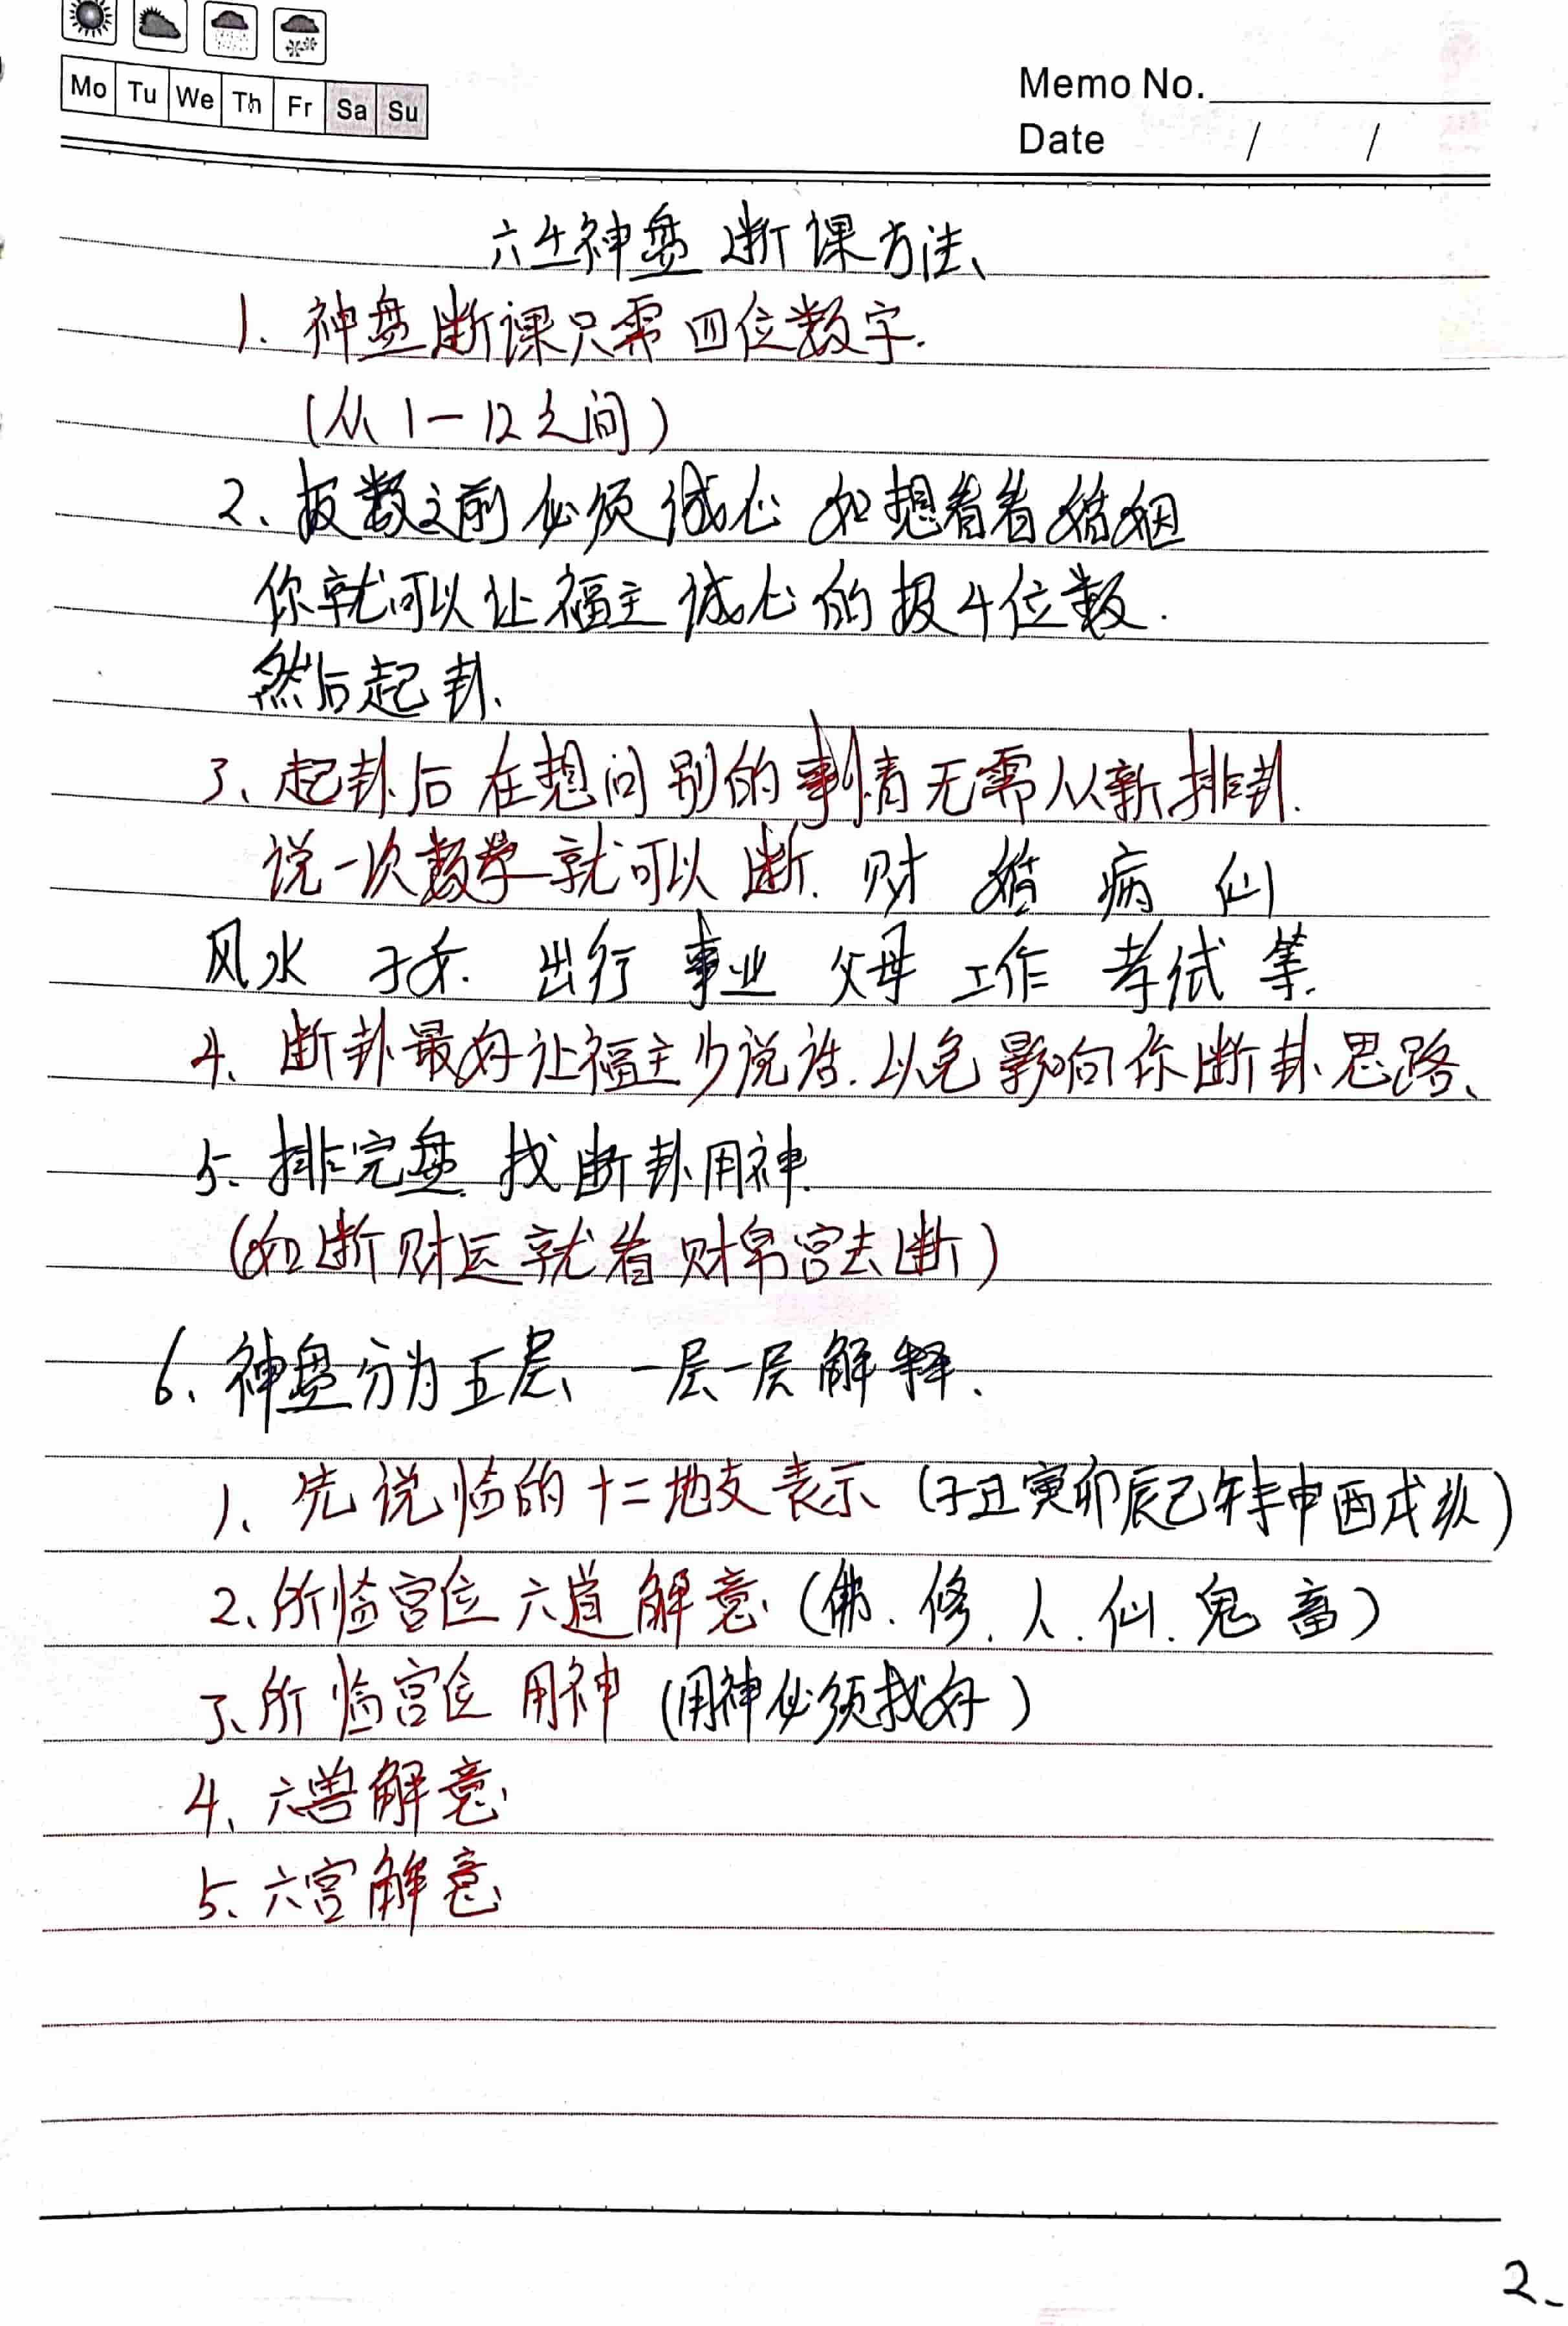 Mo Tu We Th Fr Sa Su
Memo No.
Date / /
六壬神盘断课方法、
1. 神盘断课只需四位数字.
(从1一12之间)
2、报数之前必须诚心 如想看看婚姻
你就可以让福主诚心的报4位数.
然后起卦、
3、起卦后在想问别的事情无需从新排卦.
说一次数字就可以断. 财 婚 病 仙
风水 子女. 出行 事业 父母 工作 考试 等.
4、断卦最好让福主少说话.以免影响你断卦思路、
5、排完盘.找断卦用神.
(如断财运就看财帛宫去断)
6、神盘分为五层、一层一层解释.
1、先说临的十二地支表示 (子丑寅卯辰巳午未申酉戌亥)
2、所临宫位六道解意 (佛.修.人.仙.鬼 畜)
3、所临宫位 用神 (用神必须找好)
4、六兽解意
5、六宫解意
2、